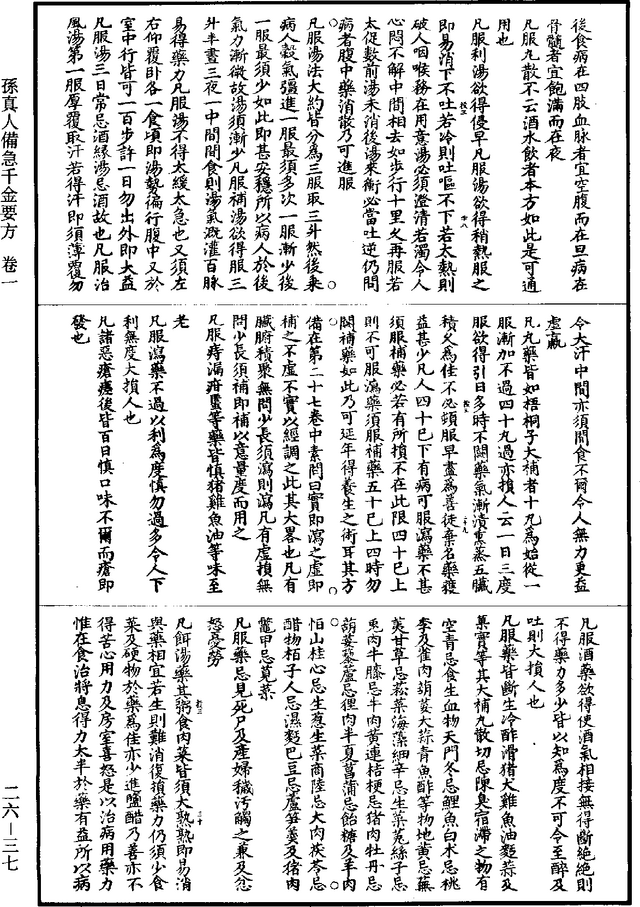 後食病在四肢血脉者宜空腹而在旦病在
骨髓者宜飽滿而在夜
凡服丸散不云酒水飲者本方如此是可通
用也
凡服利湯欲得侵早凡服湯欲得稍熱服之
即易消下不吐若冷則吐嘔不下若太熱則
破人咽喉務在用意湯必須澄清若濁令人
心悶不解中間相去如步行十里久再服若
太促數前湯未消後湯來衝必當吐逆仍問
病者腹中藥消散乃可進服
凡服湯法大約皆分為三服取三升然後乘
病人穀氣彊進一服最須多次一服漸少後
一服最須少如此即甚安穩所以病人於後
氣力漸微故湯須漸少凡服補湯欲得服三
升半晝三夜一中間間食則湯氣溉灌百脉
易得藥力凡服湯不得太緩太急也又須左
右仰覆卧各一食頃即湯勢徧行腹中又於
室中行皆可一百步許一日勿出外即大益
凡服湯三日常忌酒緣湯忌酒故也凡服治
風湯第一服厚覆取汗若得汗即須薄覆勿
令大汗中間亦須間食不爾令人無力更益
虛羸
凡丸藥皆如梧桐子大補者十丸為始從一
服漸加不過四十丸過亦損人云一日三度
服欲得引日多時不闕藥氣漸漬熏蒸五臟
積久為佳不必頓服早盡為善徒棄名藥獲
益甚少凡人四十已下有病可服瀉藥不甚
須服補藥必若有所損不在此限四十已上
則不可服瀉藥須服補藥五十已上四時勿
闕補藥如此乃可延年得養生之術耳其方
備在第二十七卷中素問曰實即瀉之虛即
補之不虛不實以經調之此其大略也凡有
臟腑積聚無問少長須瀉則瀉凡有虛損無
問少長須補即補以意量度而用之
凡服痔漏疳䘌等藥皆慎猪雞魚油等味至
老
凡服瀉藥不過以利為度慎勿過多令人下
利無度大損人也
凡諸惡瘡瘥後皆百日慎口味不爾而瘡即
發也
凡服酒藥欲得使酒氣相接無得斷絕絕則
不得藥力多少皆以知為度不可令至醉及
吐則大損人也
凡服藥皆斷生冷酢滑猪犬雞魚油麪蒜及
菓實等其大補丸散切忌陳臭宿滯之物有
空青忌食生血物天門冬忌鯉魚白术忌桃
李及雀肉葫荽大蒜青魚酢等物地黄忌蕪
荑甘草忌菘菜海藻細辛忌生菜菟絲子忌
兎肉牛膝忌牛肉黄連桔梗忌猪肉牡丹忌
葫荽藜蘆忌狸肉半夏菖蒲忌飴糖及羊肉
恒山桂心忌生葱生菜商陸忌犬肉茯苓忌
醋物栢子人忌濕麪巴豆忌蘆笋羹及猪肉
鼈甲忌莧菜
凡服藥忌見死尸及產婦穢汚觸之兼及忿
怒憂勞
凡餌湯藥其粥食肉菜皆須大熟熟即易消
與藥相宜若生則難消復損藥力仍須少食
菜及硬物於藥為佳亦少進鹽醋乃善亦不
得苦心用力及房室喜怒是以治病用藥力
惟在食治將息得力太半於藥有益所以病
孫真人備急千金要方 卷一
二六—三七